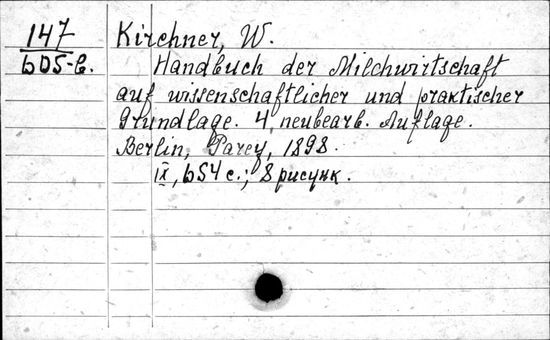 147 Kirchner, W.
605-b. Handbuch der Milchwirtschaft
auf wissenschaftlicher und praktischer
Grundlage. 4, neubearb. Auflage.
Berlin, Parey, 1898.
IX, 654 c.; 8 рисунк.